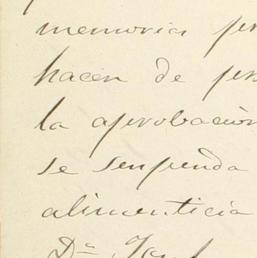 memoria pr
hacen de pr
la aprobación
se suspenda
alimenticia
Dª